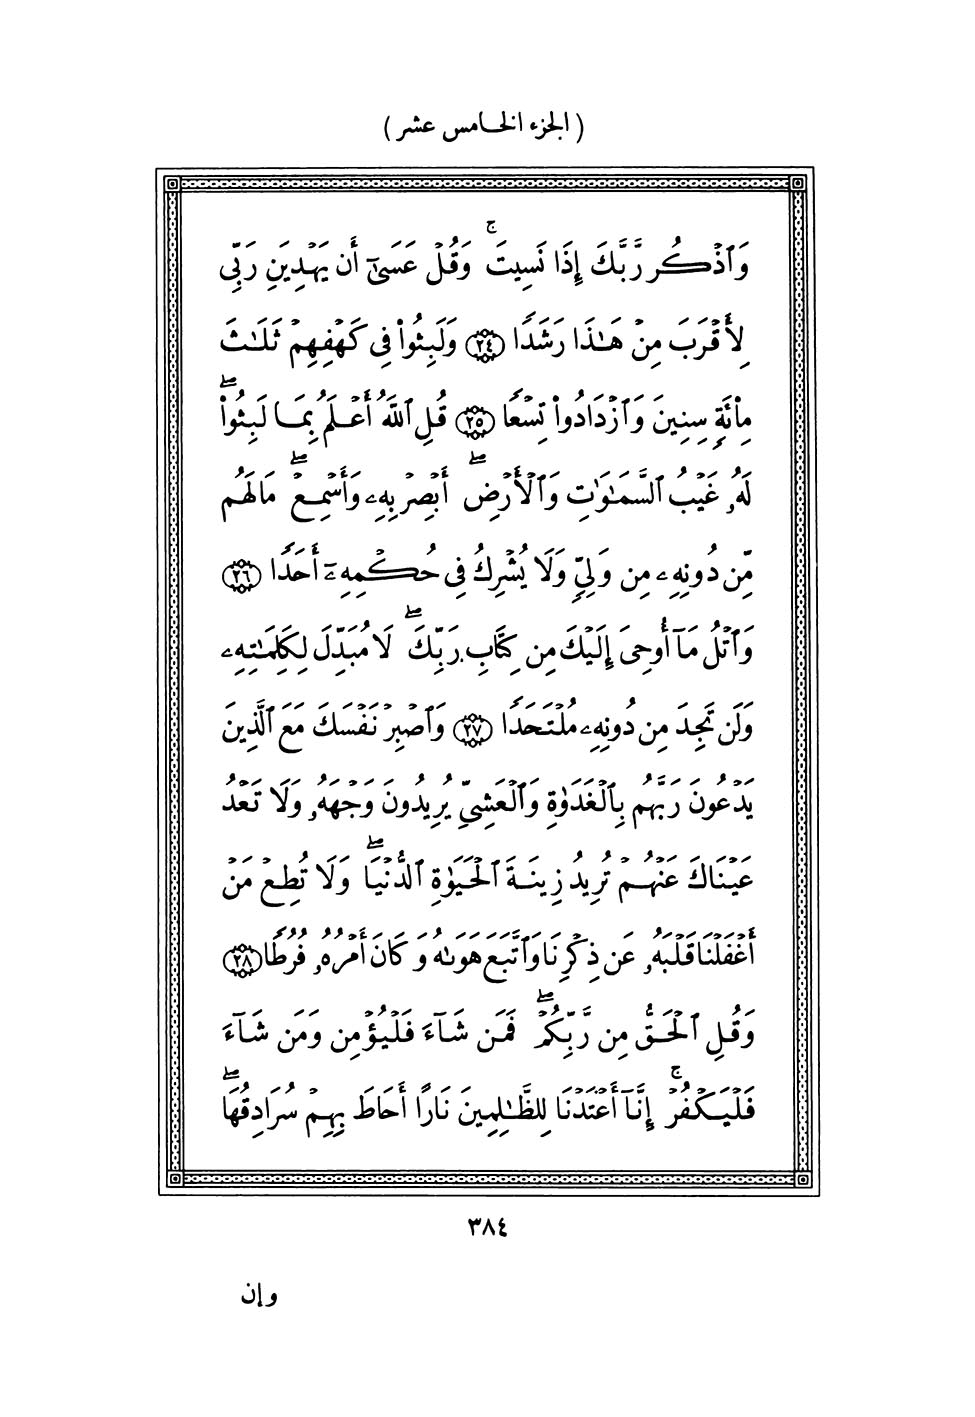 (الجزء الخامس عشر)
وَٱذۡكُر رَّبَّكَ إِذَا نَسِيتَۚ وَقُلۡ عَسَىٰٓ أَن يَهۡدِيَنِ رَبِّى
لِأَقۡرَبَ مِنۡ هَٰذَا رَشَدًا ۝٢٤ وَلَبِثُوا۟ فِى كَهۡفِهِمۡ ثَلَٰثَ
مِا۟ئَةٍ سِنِينَ وَٱزۡدَادُوا۟ تِسۡعًا ۝٢٥ قُلِ ٱللَّهُ أَعۡلَمُ بِمَا لَبِثُوا۟ۖ
لَهُۥ غَيۡبُ ٱلسَّمَٰوَٰتِ وَٱلۡأَرۡضِۖ أَبۡصِرۡ بِهِۦ وَأَسۡمِعۡۖ مَا لَهُم
مِّن دُونِهِۦ مِن وَلِىٍّ وَلَا يُشۡرِكُ فِى حُكۡمِهِۦٓ أَحَدًا ۝٢٦
وَٱتۡلُ مَآ أُوحِىَ إِلَيۡكَ مِن كِتَابِ رَبِّكَۖ لَا مُبَدِّلَ لِكَلِمَٰتِهِۦ
وَلَن تَجِدَ مِن دُونِهِۦ مُلۡتَحَدًا ۝٢٧ وَٱصۡبِرۡ نَفۡسَكَ مَعَ ٱلَّذِينَ
يَدۡعُونَ رَبَّهُم بِٱلۡغَدَوٰةِ وَٱلۡعَشِىِّ يُرِيدُونَ وَجۡهَهُۥ وَلَا تَعۡدُ
عَيۡنَاكَ عَنۡهُمۡ تُرِيدُ زِينَةَ ٱلۡحَيَوٰةِ ٱلدُّنۡيَاۖ وَلَا تُطِعۡ مَنۡ
أَغۡفَلۡنَا قَلۡبَهُۥ عَن ذِكۡرِنَا وَٱتَّبَعَ هَوَىٰهُ وَكَانَ أَمۡرُهُۥ فُرُطًا ۝٢٨
وَقُلِ ٱلۡحَقُّ مِن رَّبِّكُمۡۖ فَمَن شَآءَ فَلۡيُؤۡمِن وَمَن شَآءَ
فَلۡيَكۡفُرۡۚ إِنَّآ أَعۡتَدۡنَا لِلظَّٰلِمِينَ نَارًا أَحَاطَ بِهِمۡ سُرَادِقُهَاۖ
٣٨٤
وإن